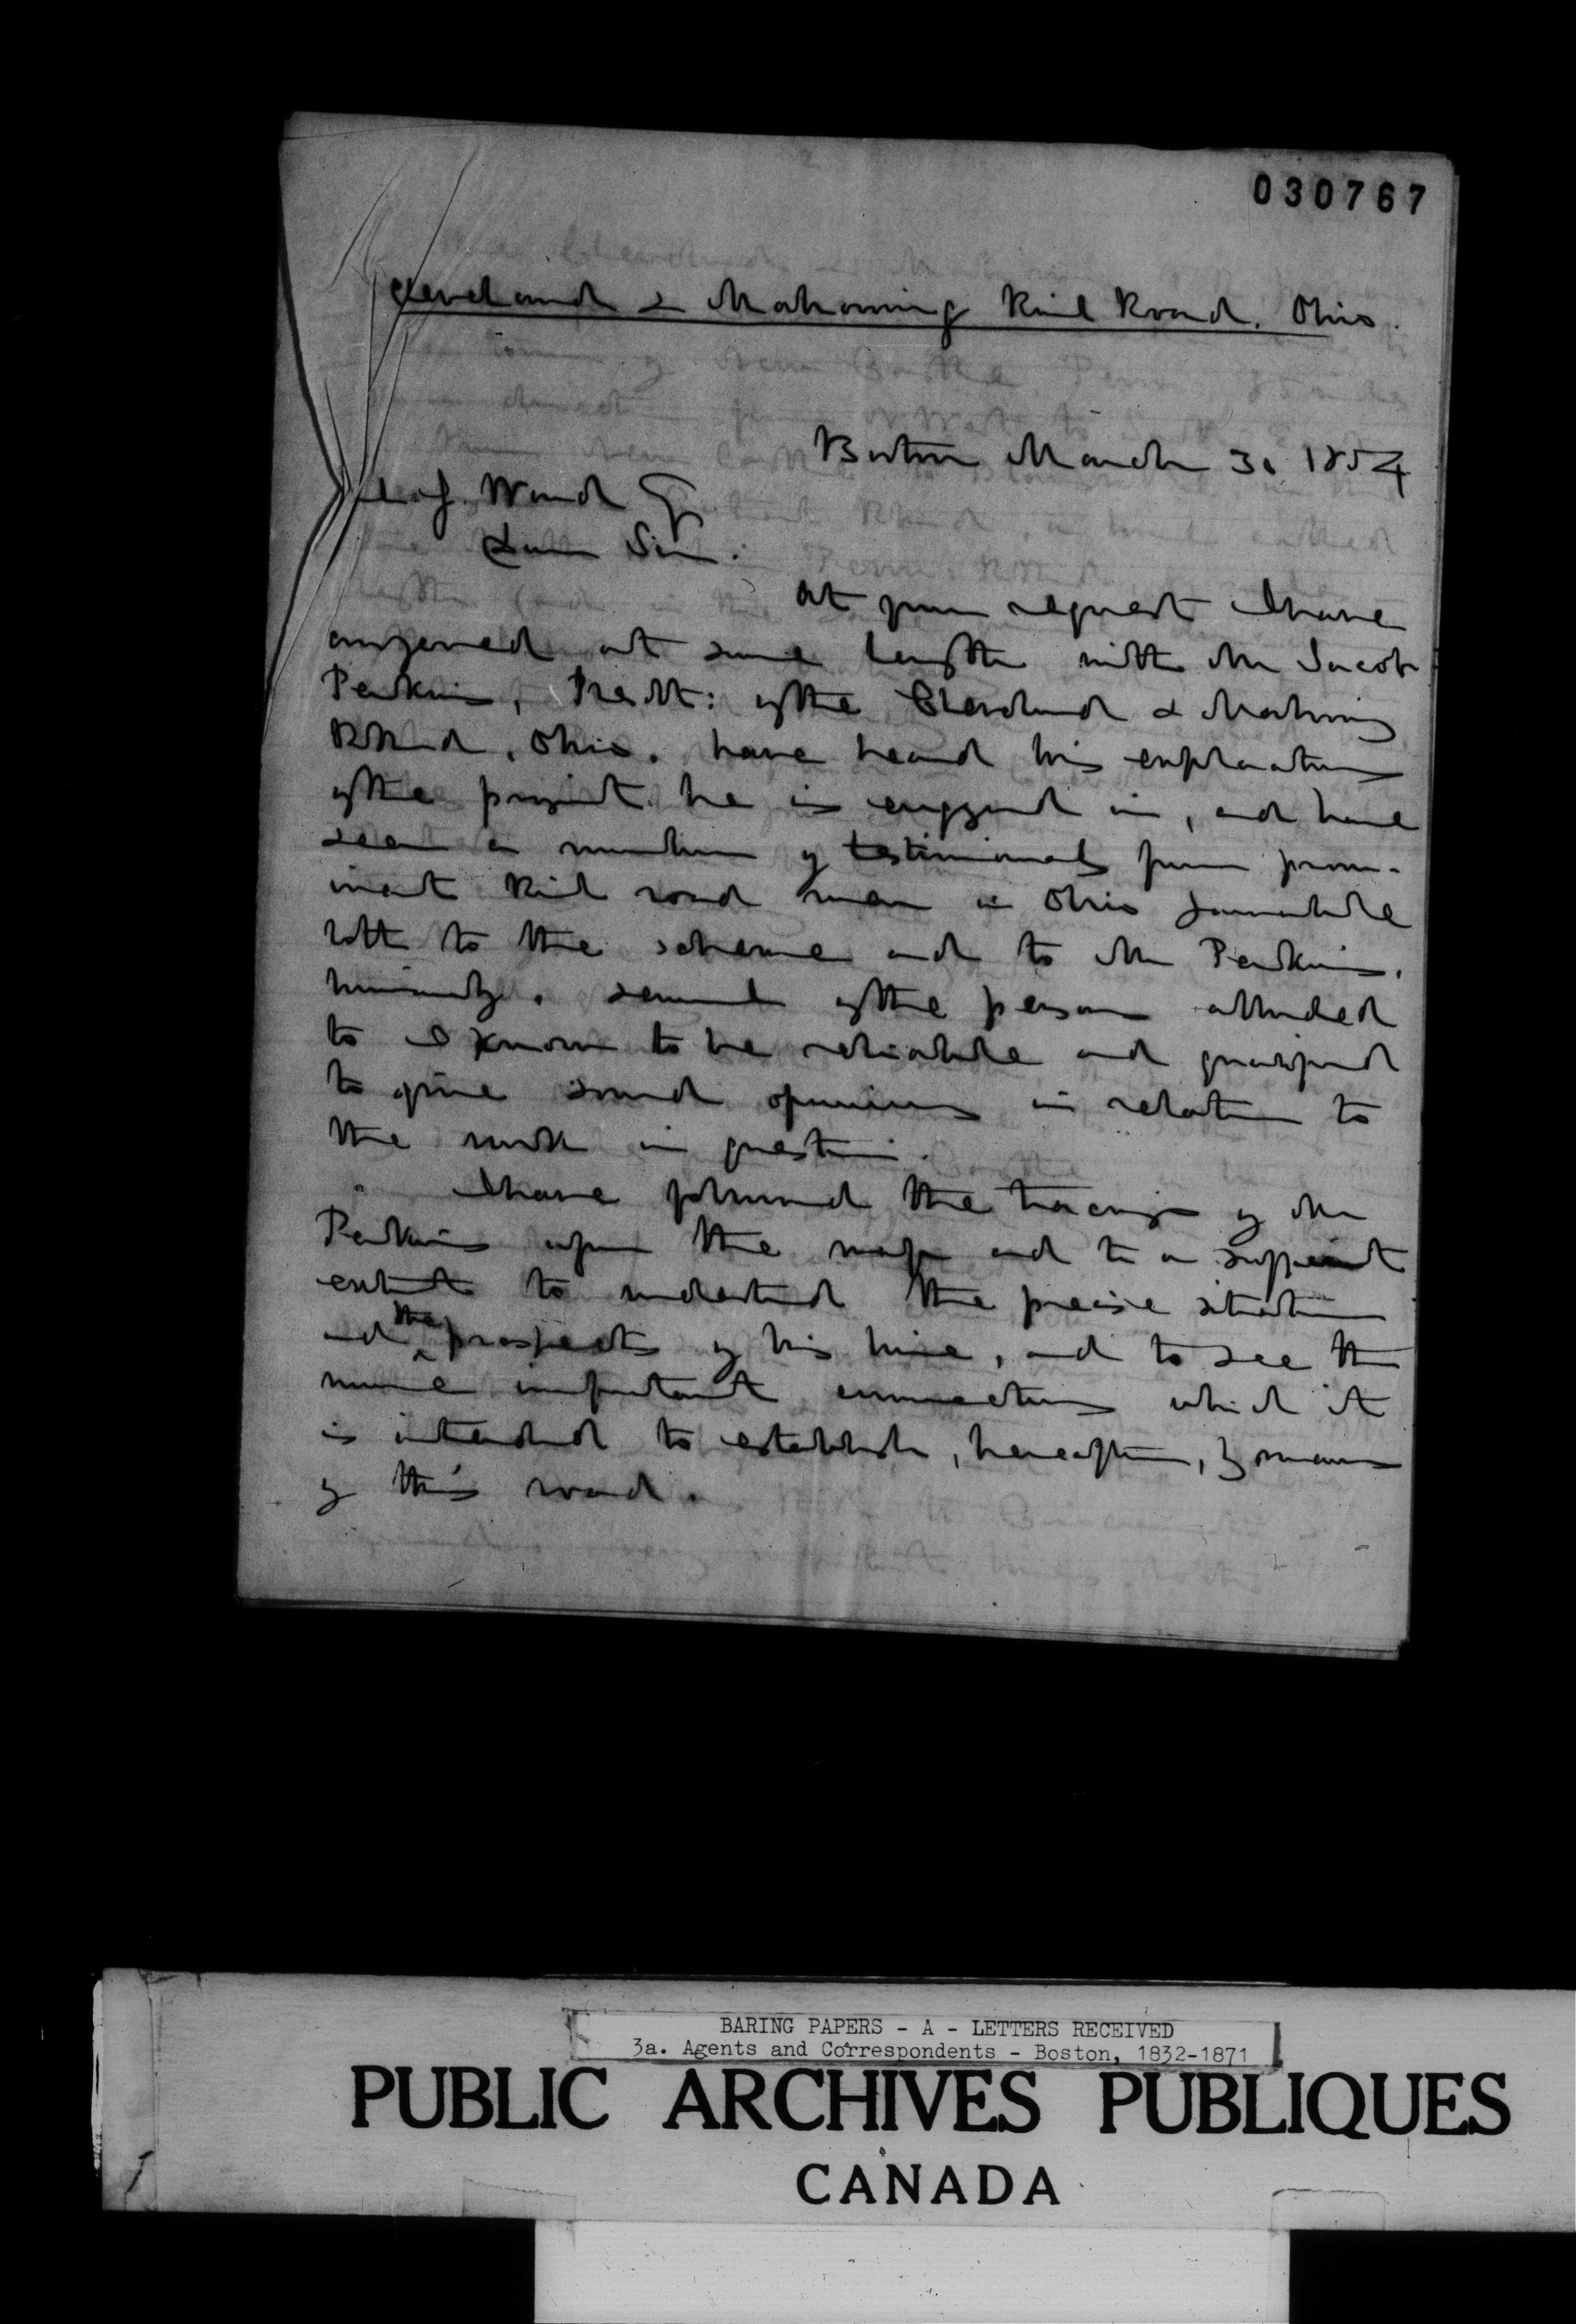 030767
Cleveland & Mahoning Rail Road. Ohio.
Boston March 30 1854
Ward Esq
Dear Sir.
At your request I have
conferred at some length with Mr Jacob
Perkins, Presdt: of the Cleveland & Mahoning
RRoad, Ohio. have heard his explanations
of the project he is engaged in, and have
seen a number of testimonials from prom-
inent Rail road men in Ohio favorable
both to the scheme and to Mr Perkins,
himself. several of the persons alluded
to I know to be reliable and qualified
to give sound opinions in relation to
the work in question.
I have followed the tracings of Mr
Perkins upon the map and to a sufficient
extent to understand the precise situation
and the prospects of his line, and to see the
more important connections which it
is intended to establish, hereafter, by means
of this road.
BARING PAPERS - A - LETTERS RECEIVED
3a. Agents and Correspondents - Boston, 1832-1871
PUBLIC ARCHIVES PUBLIQUES
CANADA